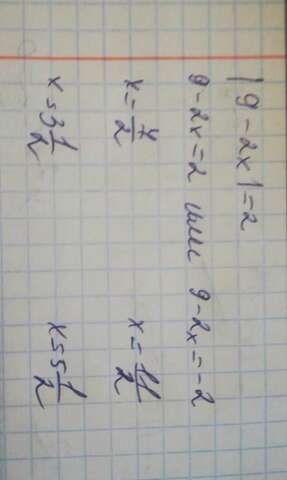 |9 - 2x| = 2
9 - 2x = 2 или 9 - 2x = -2
x = 7/2 x = 11/2
x = 3 1/2 x = 5 1/2